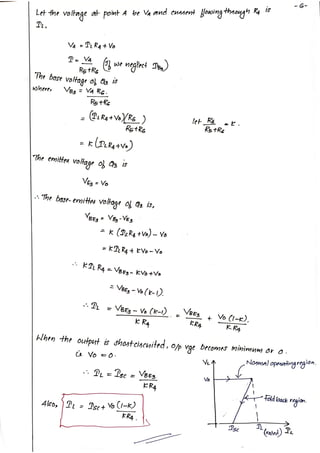 -6-
Let the voltage at point A be VA and current flowing through R4 is
IL.
VA = IL R4 + Vo
I = VA / (R5+R6) (If we neglect IB3)
The base voltage of Q3 is
where, VB3 = VA R6 / (R5+R6)
= (ILR4+Vo)(R6 / (R5+R6)) let R6 / (R5+R6) = K.
= K (ILR4+Vo)
The emitter voltage of Q3 is
VE3 = Vo
∴ The base-emitter voltage of Q3 is,
VBE3 = VB3 - VE3
= K (ILR4 + Vo) - Vo
= KILR4 + KVo - Vo
∴ KILR4 = VBE3 - KVo + Vo
= VBE3 - Vo (K-1).
∴ IL = (VBE3 - Vo (K-1)) / KR4 = VBE3 / KR4 + Vo (1-K) / K.R4
When the output is short circuited, o/p vge becomes minimum or 0.
is Vo = 0.
∴ IL = ISC = VBE3 / KR4
Also, IL = ISC + Vo (1-K) / KR4.
VL
Normal operating region.
Vo
Fold back region
ISC
IL (rated)
IL